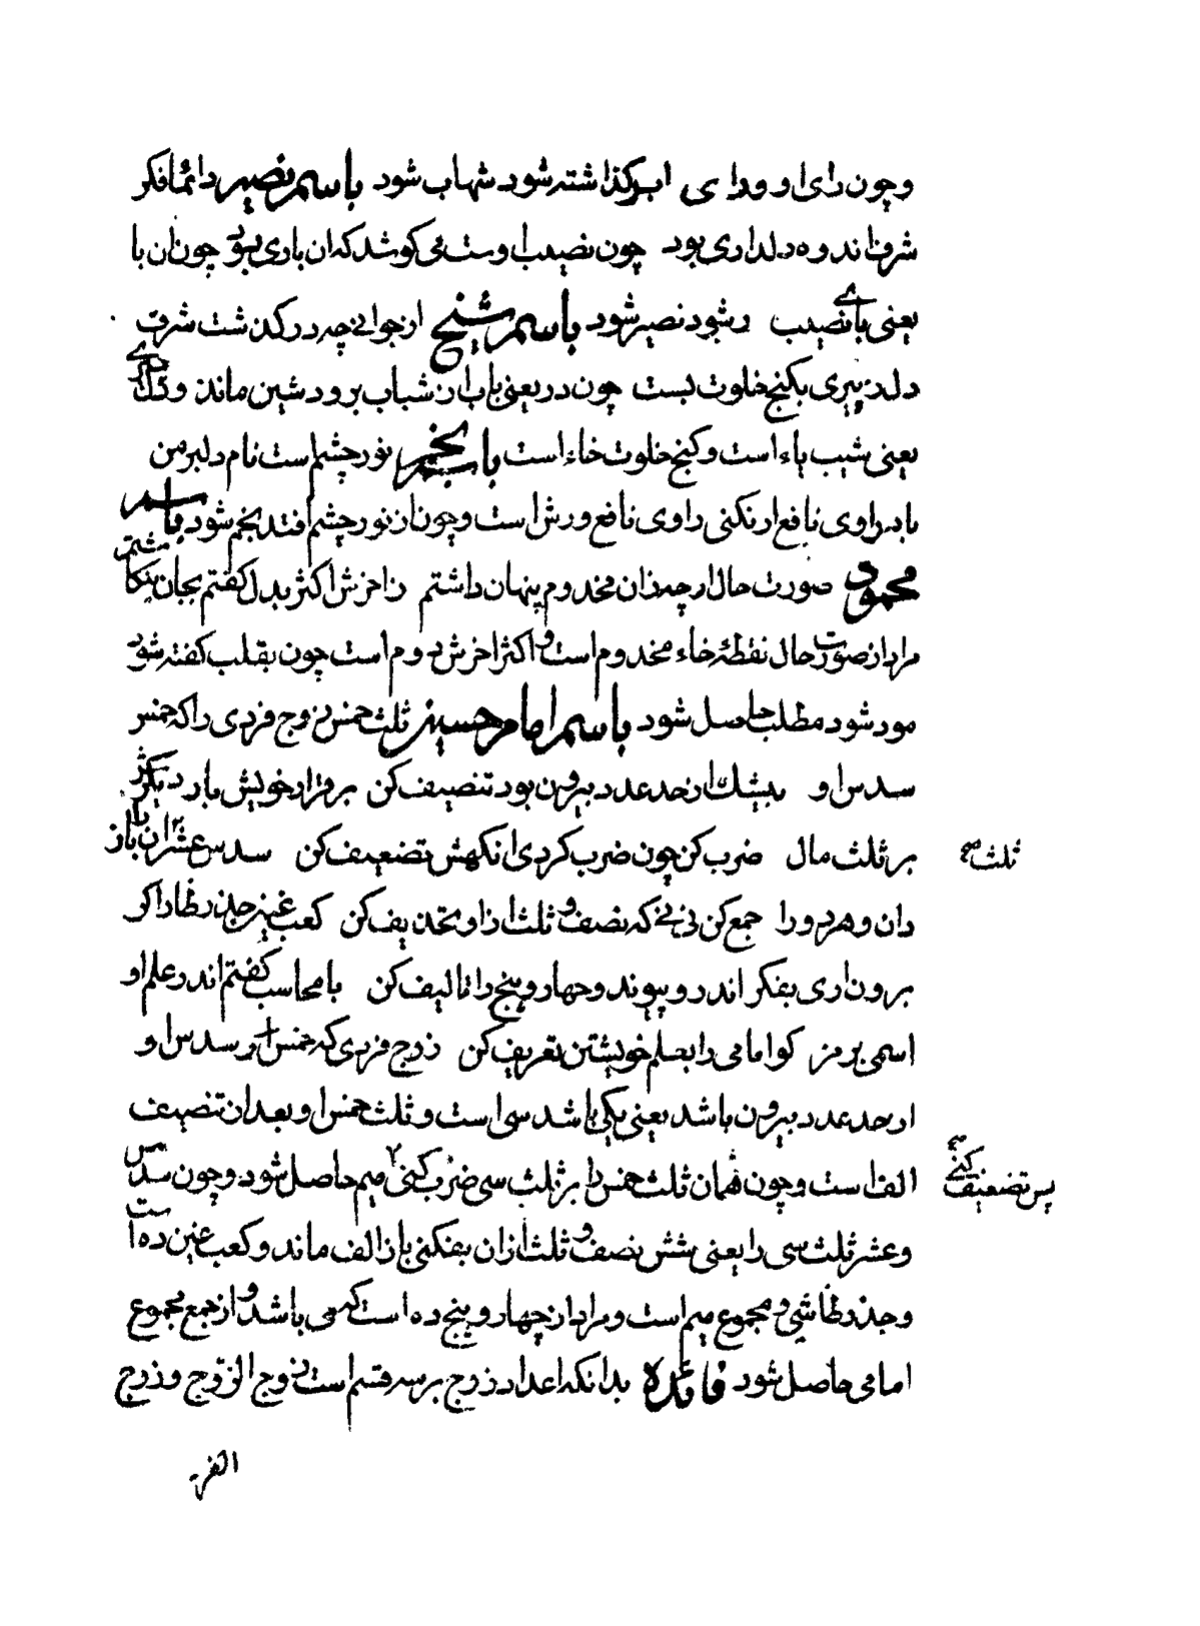 وچون رای او ورای ابر کذاشته شود شهاب شود باسم نصیر دائما فکر
شرف اندوه دلداری بود چون نصیب اوست می کوشد که ان باری بود چون ان با
یعنی بای نصیب رشود نصیر شود باسم شیخ از جوانی چه درکذشت شرف
دلد پیری بکنج خلوت بست چون در یعنی باب از شباب برود شین ماند و
یعنی شیب یاء است وکنج خلوت خاء است باسم نور چشم است نام دلبر من
بادراوی نافع ار نکنی راوی نافع ورش است وچون از نور چشم افتد نجم شود باسم
محمود صورت حال ارچه زان مخدوم پنهان داشتم زاخرش اکثر بدل کفتم بجان
مراد از صورت حال نقطهٔ خاء مخدوم است و اکثر اخرش دوم است چون بقلب کفته شود
مود شود مطلب حاصل شود باسم امام حسین ثلث خمس زوج فردی را که خمس
سدس او بیشک از حد عدد بیرون بود تنصیف کن برقرار خویش بار دیکرش
بر ثلث مال ضرب کن چون ضرب کردی انکهش تضعیف کن سدس عشر ان باز
ثلث صح
دان وهردو را جمع کن نی نی که نصف و ثلث ازاو تحذیف کن کعب جذر ظا را کر
برون اری بفکر اندرو پیوند وچهار وپنج را تالیف کن با محاسب کفتم اندر علم او
اسمی برمز کو امامی را بعلم خویشتن تعریف کن زوج فردی که خمس سدس او
از حد عدد بیرون باشد یعنی یکی باشد سی است وثلث خمس او بعد از تنصیف
الف است وچون همان ثلث خمس را بر ثلث سی ضرب کنی میم حاصل شود وچون سدس
پس تضعیف کنی صح
وعشر ثلث سی را یعنی شش نصف و ثلث ازان بفکنی باز الف ماند وکعب ده است
وجذر ظا شی ومجموع میم است ومراد از چهار وپنج ده است که می باشد واز جمع مجموع
امامی حاصل شود فائده بدانکه اعداد زوج بر سه قسم است زوج الزوج وزوج
الفرد